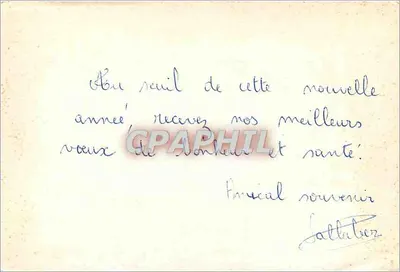 Au seuil de cette nouvelle
année, recevez nos meilleurs
vœux de bonheur et santé.
Amical souvenir
CPAPHIL